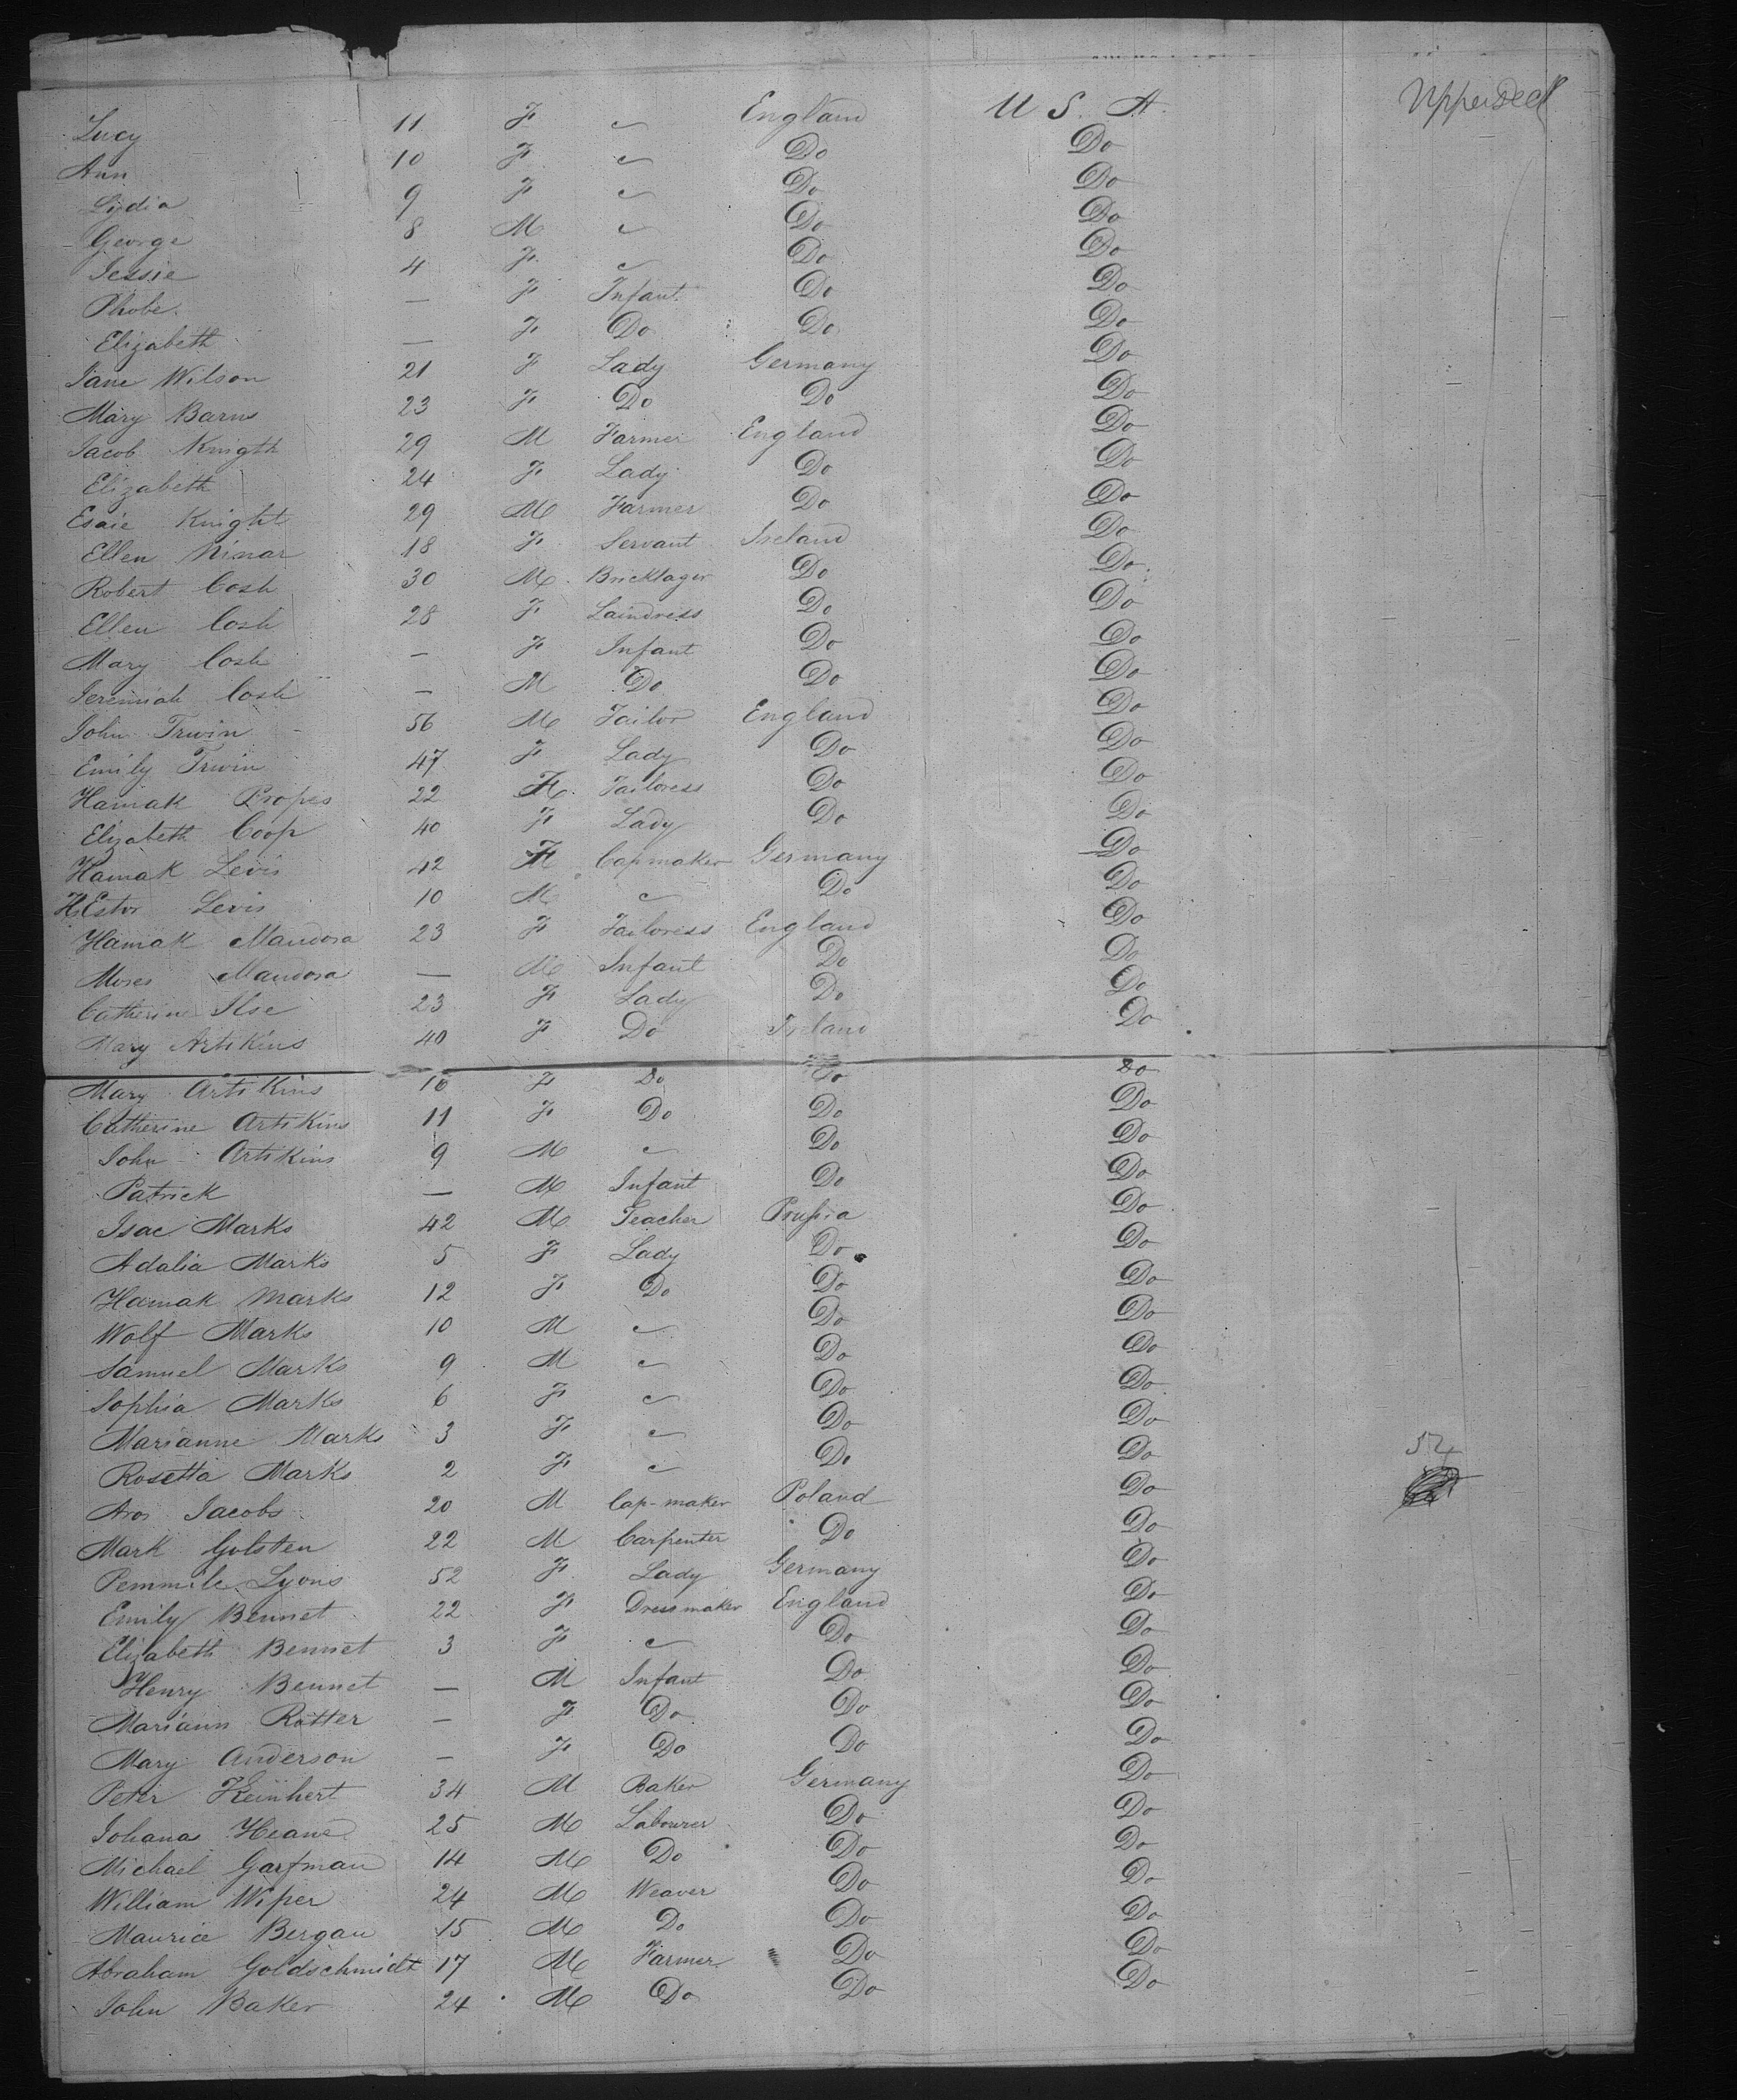 Lucy 11 F " England U S. A. Upperdeck
Ann 10 F " Do Do
Lydia 9 F " Do Do
George 8 M " Do Do
Jessie 4 F " Do Do
Phobe. — F Infant Do Do
Elizabeth — F Do Do Do
Jane Wilson 21 F Lady Germany Do
Mary Barns 23 F Do Do Do
Jacob Knigth 29 M Farmer England Do
Elizabeth 24 F Lady Do Do
Esaie Knight 29 M Farmer Do Do
Ellen Minar 18 F Servant Ireland Do
Robert Cosh 30 M Bricklager Do Do
Ellen Cosh 28 F Laindress Do Do
Mary Cosh — F Infant Do Do
Jeremiah Cosh — M Do Do Do
John Irwin 56 M Tailor England Do
Emily Irwin 47 F Lady Do Do
Hamak Propes 22 F Tailoress Do Do
Elizabeth Coop 40 F Lady Do Do
Hamak Levis 42 F Capmaker Germany Do
Estor Levis 10 M " Do Do
Hamak Mandora 23 F Tailoress England Do
Moses Mandora — M Infant Do Do
Catherine Ilse 23 F Lady Do Do
Mary Artikins 40 F Do Ireland Do
Mary Artikins 16 F Do Do Do
Catherine Artikins 11 F Do Do Do
John Artikins 9 M " Do Do
Patrick — M Infant Do Do
Isac Marks 42 M Teacher Prussia Do
Adalia Marks 5 F Lady Do Do
Hamak Marks 12 F Do Do Do
Wolf Marks 10 M " Do Do
Samuel Marks 9 M " Do Do
Sophia Marks 6 F " Do Do
Marianne Marks 3 F " Do Do
Rosetta Marks 2 F " Do Do 54
Aron Jacobs 20 M Cap-maker Poland Do
Mark Golsten 22 M Carpenter Do Do
Pemmile Lyons 52 F Lady Germany Do
Emily Bennet 22 F Dressmaker England Do
Elizabeth Bennet 3 F " Do Do
Henry Bennet — M Infant Do Do
Mariann Rotter — F Do Do Do
Mary Anderson — F Do Do Do
Peter Keinhert 34 M Baker Germany Do
Johana Heane 25 M Labourer Do Do
Michael Garfman 14 M Do Do Do
William Wiper 24 M Weaver Do Do
Maurice Bergan 15 M Do Do Do
Abraham Goldschmidt 17 M Farmer Do Do
John Baker 24 M Do Do Do